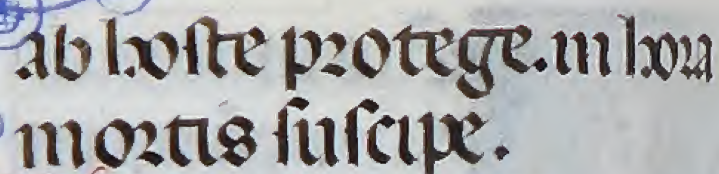 ab hoste protege. in hora
mortis suscipe.